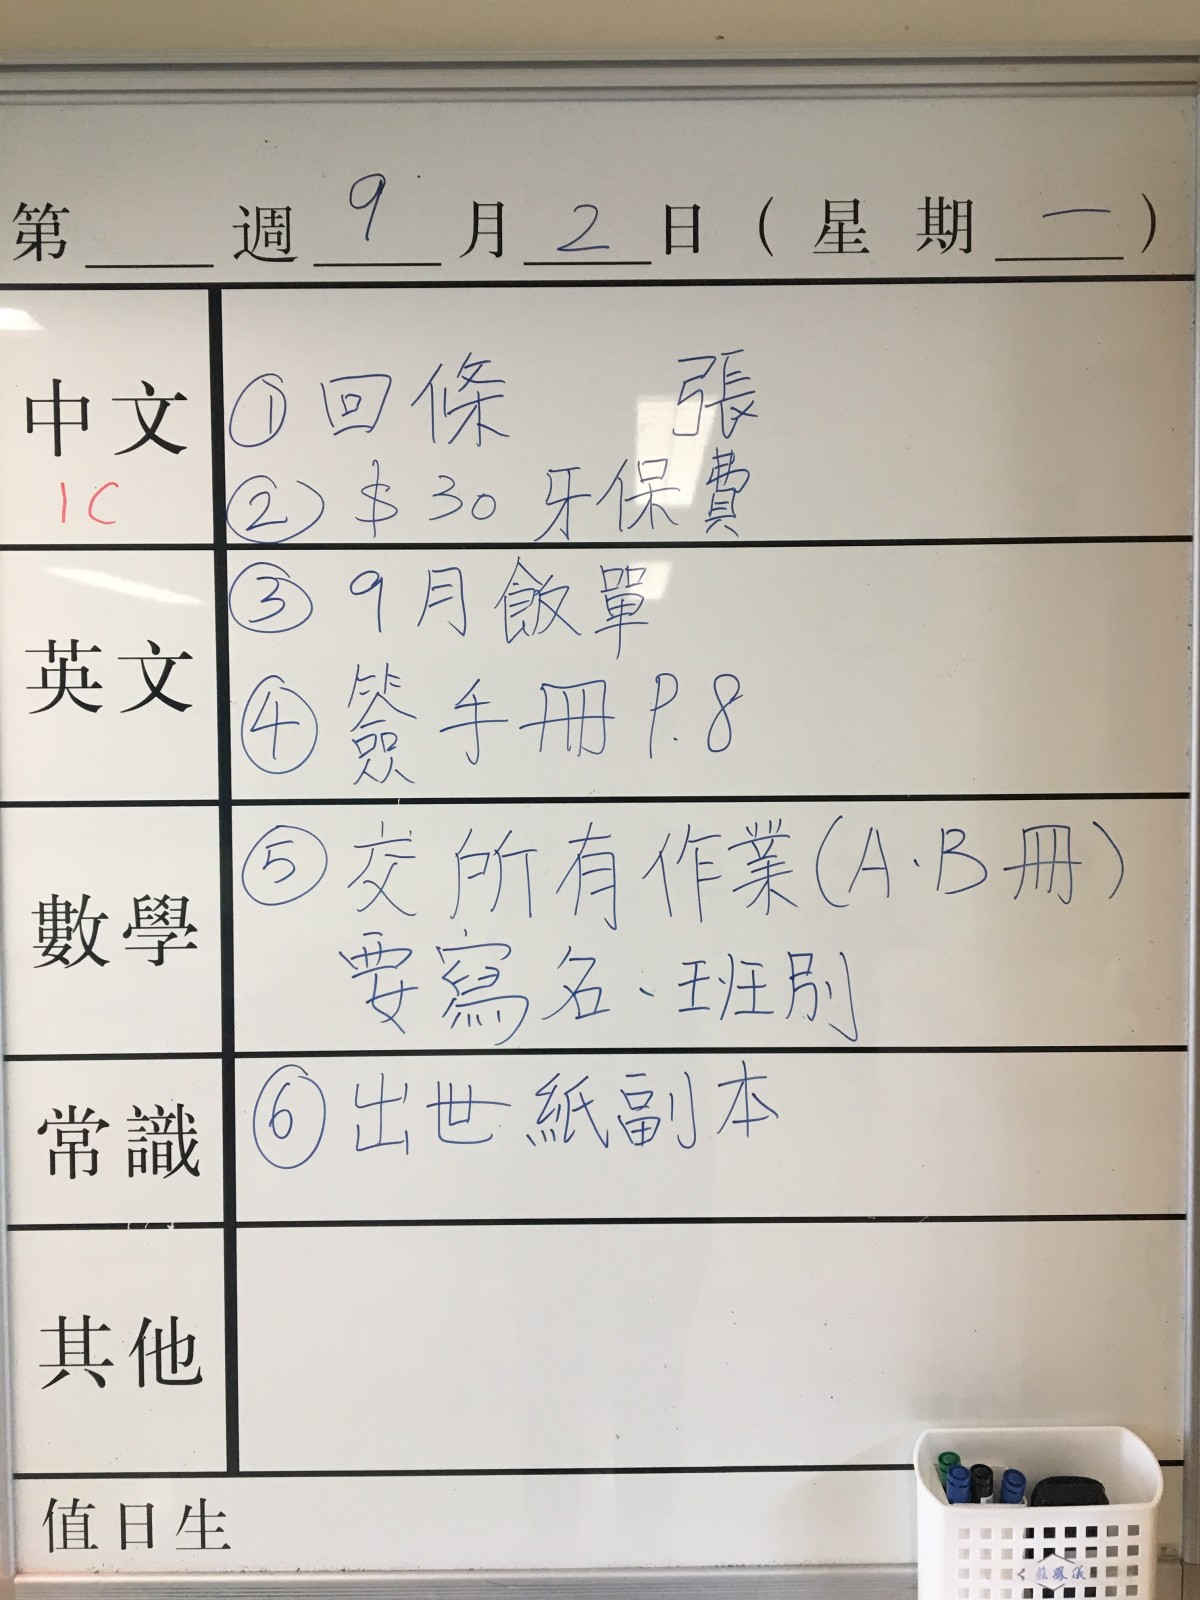 第 週 9 月 2 日（星期 一）
中文
1C
① 回條 張
② $30 牙保費
英文
③ 9月飯單
④ 簽手冊 P.8
數學
⑤ 交所有作業(A.B冊)
要寫名、班別
常識
⑥ 出世紙副本
其他
值日生
蘇鳳儀